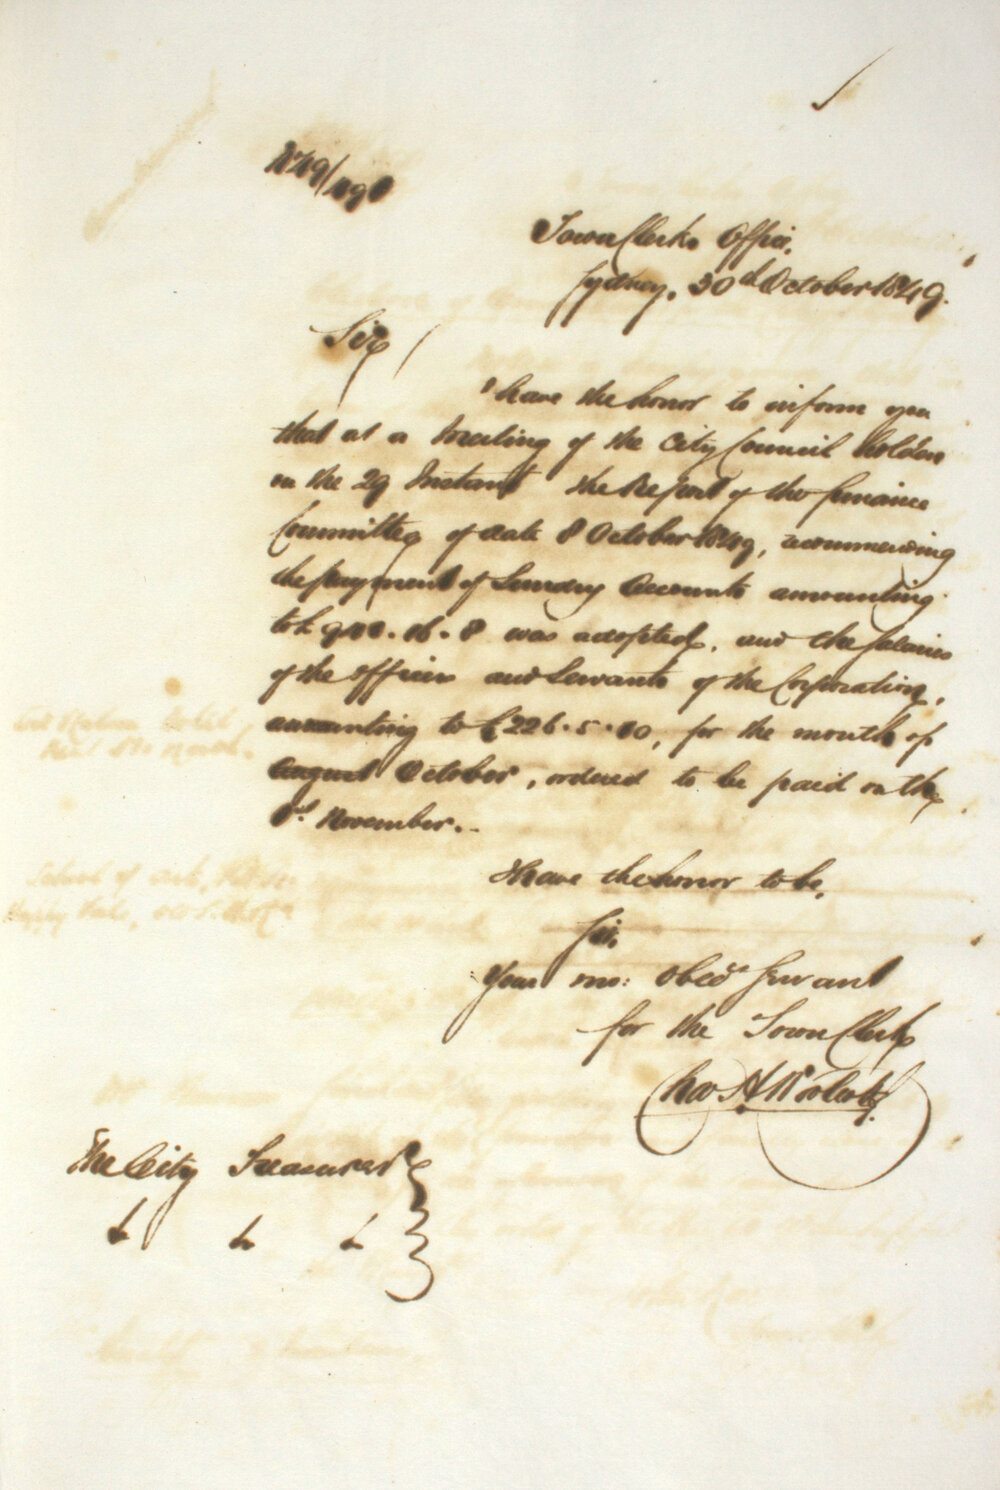 Town Clerks Office,
Sydney, 30th October 1849.
Sir
I have the honor to inform you
that at a meeting of the City Council holden
on the 29 Instant the Report of the Finance
Committee of date 8 October 1849, recommending
the payment of Sundry Accounts amounting
to £ 16. 8 was adopted, and the Salaries
of the Officers and Servants of the Corporation,
amounting to £226. 5. 10, for the month of
August October, ordered to be paid on the
1st November.
I have the honor to be,
Sir,
Your mo: obedt Servant
for the Town Clerk
Chas H Woolcott
The City Treasurer
&c &c &c